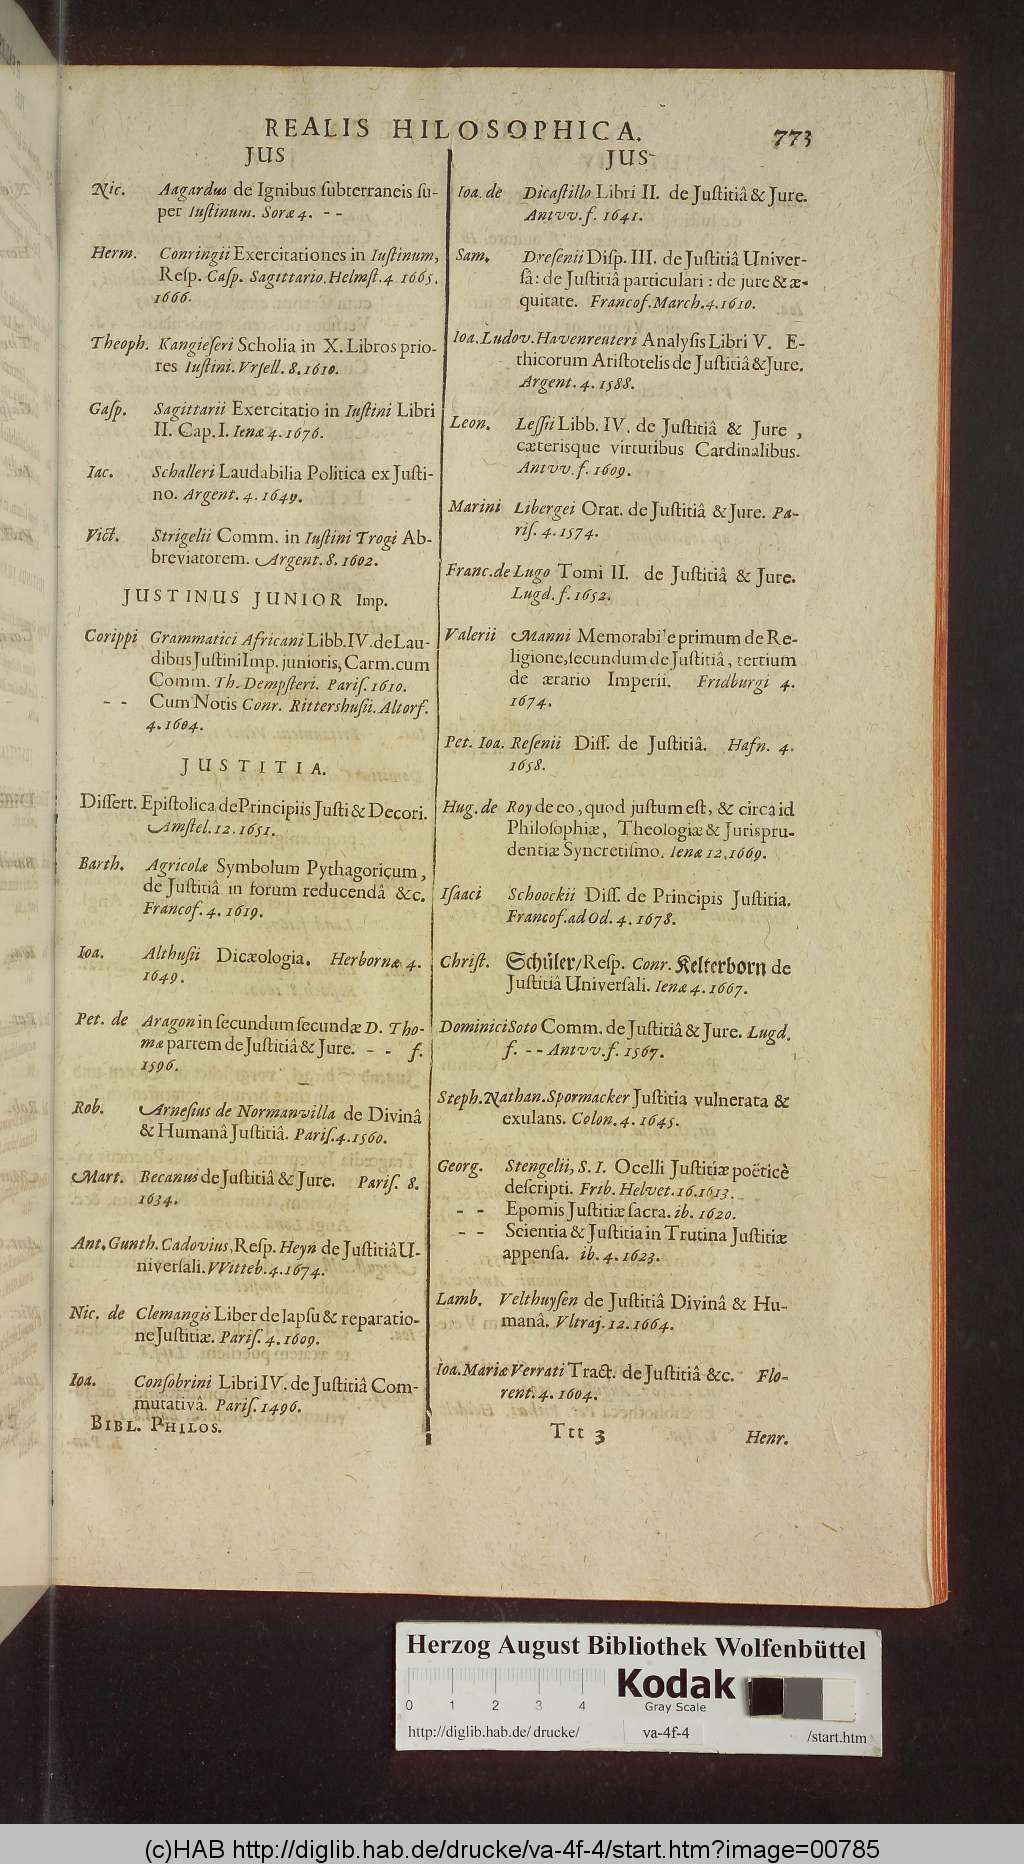 REALIS HILOSOPHICA. 773
JUS
Nic. Aagardus de Ignibus ſubterraneis ſu-
per Iuſtinum. Soræ 4. - -
Herm. Conringii Exercitationes in Iuſtinum,
Reſp. Caſp. Sagittario. Helmſt. 4 1665.
1666.
Theoph. Kangieſeri Scholia in X. Libros prio-
res Iuſtini. Vrſell. 8. 1610.
Gaſp. Sagittarii Exercitatio in Iuſtini Libri
II. Cap. I. Ienæ 4. 1676.
Iac. Schalleri Laudabilia Politica ex Juſti-
no. Argent. 4. 1649.
Vict. Strigelii Comm. in Iuſtini Trogi Ab-
breviatorem. Argent. 8. 1602.
JUSTINUS JUNIOR Imp.
Corippi Grammatici Africani Libb. IV. de Lau-
dibus Juſtini Imp. junioris, Carm. cum
Comm. Th. Dempſteri. Pariſ. 1610.
- - Cum Notis Conr. Rittershuſii. Altorf.
4. 1604.
JUSTITIA.
Diſſert. Epiſtolica de Principiis Juſti & Decori.
Amſtel. 12. 1651.
Barth. Agricolæ Symbolum Pythagoricum,
de Juſtitiâ in forum reducendâ &c.
Francof. 4. 1619.
Ioa. Althuſii Dicæologia. Herbornæ 4.
1649.
Pet. de Aragon in ſecundum ſecundæ D. Tho-
mæ partem de Juſtitiâ & Jure. - - f.
1596.
Rob. Arneſius de Normanvvilla de Divinâ
& Humanâ Juſtitiâ. Pariſ. 4. 1560.
Mart. Becanus de Juſtitiâ & Jure. Pariſ. 8.
1634.
Ant. Gunth. Cadovius, Reſp. Heyn de Juſtitiâ U-
niverſali. VVitteb. 4. 1674.
Nic. de Clemangis Liber de lapſu & reparatio-
ne Juſtitiæ. Pariſ. 4. 1609.
Ioa. Conſobrini Libri IV. de Juſtitiâ Com-
mutativâ. Pariſ. 1496.
BIBL. PHILOS.
JUS
Ioa. de Dicaſtillo Libri II. de Juſtitiâ & Jure.
Antvv. f. 1641.
Sam. Dreſenii Diſp. III. de Juſtitiâ Univer-
ſâ: de Juſtitiâ particulari: de jure & æ-
quitate. Francof. March. 4. 1610.
Ioa. Ludov. Havenreuteri Analyſis Libri V. E-
thicorum Ariſtotelis de Juſtitiâ & Jure.
Argent. 4. 1588.
Leon. Leſſii Libb. IV. de Juſtitiâ & Jure,
cæterisque virtutibus Cardinalibus.
Antvv. f. 1609.
Marini Libergei Orat. de Juſtitiâ & Jure. Pa-
riſ. 4. 1574.
Franc. de Lugo Tomi II. de Juſtitiâ & Jure.
Lugd. f. 1652.
Valerii Manni Memorabile primum de Re-
ligione, ſecundum de Juſtitiâ, tertium
de ærario Imperii. Fridburgi 4.
1674.
Pet. Ioa. Reſenii Diſſ. de Juſtitiâ. Hafn. 4.
1658.
Hug. de Roy de eo, quod juſtum eſt, & circa id
Philoſophiæ, Theologiæ & Jurispru-
dentiæ Syncretiſmo. Ienæ 12. 1669.
Iſaaci Schoockii Diſſ. de Principis Juſtitia.
Francof. ad Od. 4. 1678.
Chriſt. Schüler/ Reſp. Conr. Kelterborn de
Juſtitiâ Univerſali. Ienæ 4. 1667.
Dominici Soto Comm. de Juſtitiâ & Jure. Lugd.
f. - - Antvv. f. 1567.
Steph. Nathan. Spormacker Juſtitia vulnerata &
exulans. Colon. 4. 1645.
Georg. Stengelii, S. I. Ocelli Juſtitiæ poëticè
deſcripti. Frib. Helvet. 16. 1613.
- - Epomis Juſtitiæ ſacra. ib. 1620.
- - Scientia & Juſtitia in Trutina Juſtitiæ
appenſa. ib. 4. 1623.
Lamb. Velthuyſen de Juſtitiâ Divinâ & Hu-
manâ. Vltraj. 12. 1664.
Ioa. Mariæ Verrati Tract. de Juſtitiâ &c. Flo-
rent. 4. 1604.
Ttt 3 Henr.
Herzog August Bibliothek Wolfenbüttel
0 1 2 3 4
Kodak
Gray Scale
http://diglib.hab.de/drucke/ va-4f-4 /start.htm
(c)HAB http://diglib.hab.de/drucke/va-4f-4/start.htm?image=00785